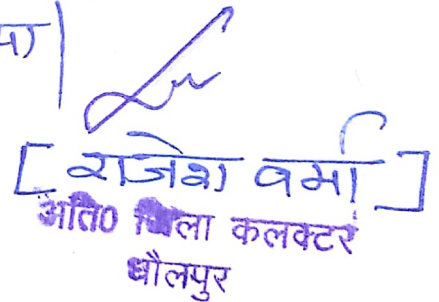 [ राजेश वर्मा ]
अति० जिला कलक्टर
धौलपुर